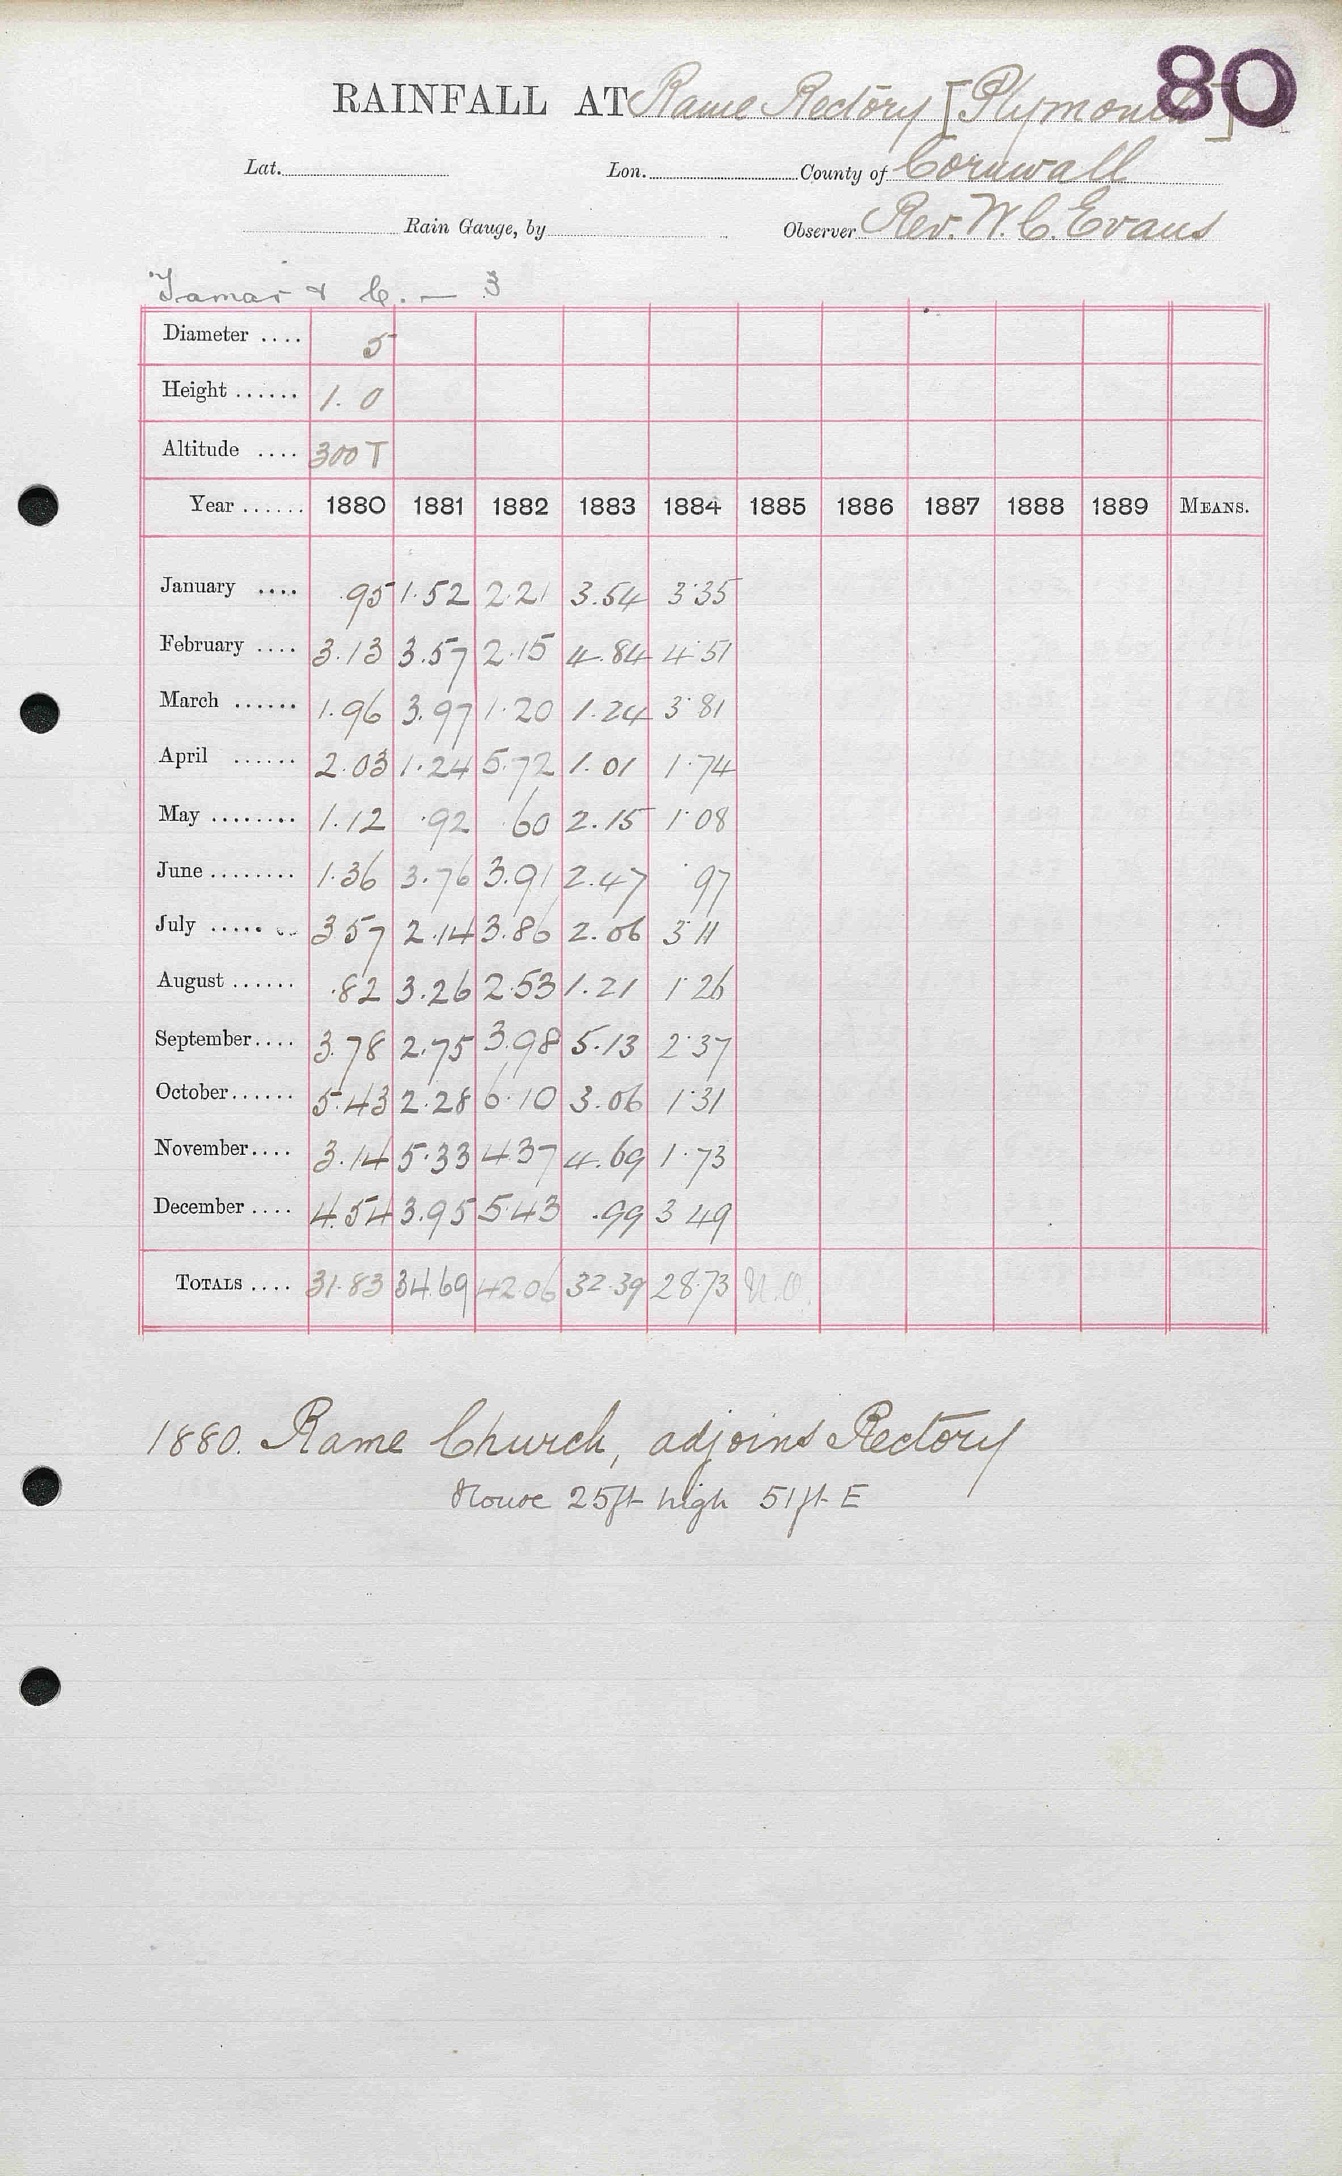 80
RAINFALL AT Rame Rectory [Plymouth]
Lat. Lon. County of Cornwall
Rain Gauge, by Observer Rev. W. C. Evans
Tamar & C. — 3
Diameter .... 5
Height ...... 1. 0
Altitude .... 300 T
Year ...... 1880 1881 1882 1883 1884 1885 1886 1887 1888 1889 MEANS.
January .... .95 1.52 2.21 3.54 3.35
February .... 3.13 3.57 2.15 4.84 4.51
March ...... 1.96 3.97 1.20 1.24 3.81
April ...... 2.03 1.24 5.72 1.01 1.74
May ........ 1.12 .92 .60 2.15 1.08
June ........ 1.36 3.76 3.91 2.47 .97
July ........ 3 57 2.14 3.86 2.06 3.11
August ...... .82 3.26 2.53 1.21 1.26
September .... 3.78 2.75 3.98 5.13 2.37
October ...... 5.43 2.28 6.10 3.06 1.31
November .... 3.14 5.33 4 37 4.69 1.73
December .... 4.54 3.95 5 43 .99 3 49
TOTALS .... 31.83 34.69 42.06 32.39 28.73 N.O.
1880. Rame Church, adjoins Rectory
House 25ft high 51ft E